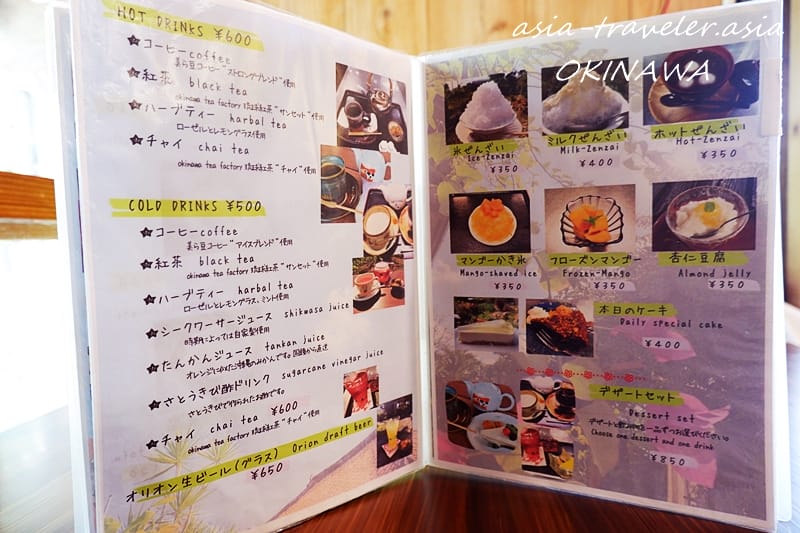 asia-traveler.asia
OKINAWA
HOT DRINKS ¥600
コーヒー coffee
美ら豆コーヒー"ストロングブレンド"使用
紅茶 black tea
okinawa tea factory 琉球紅茶"サンセット"使用
ハーブティー harbal tea
ローゼルとレモングラス使用
チャイ chai tea
okinawa tea factory 琉球紅茶"チャイ"使用
COLD DRINKS ¥500
コーヒー coffee
美ら豆コーヒー"アイスブレンド"使用
紅茶 black tea
okinawa tea factory 琉球紅茶"サンセット"使用
ハーブティー harbal tea
ローゼルとレモングラス、ミント使用
シークワーサージュース shikwasa juice
時期によっては自家製使用
たんかんジュース tankan juice
オレンジに似た沖縄のみかんです。国頭から直送
さとうきび酢ドリンク sugarcane vinegar juice
さとうきびで作られたお酢です。
チャイ chai tea ¥600
okinawa tea factory 琉球紅茶"チャイ"使用
オリオン生ビール(グラス) Orion draft beer
¥650
氷ぜんざい
Ice-Zenzai
¥350
ミルクぜんざい
Milk-Zenzai
¥400
ホットぜんざい
Hot-Zenzai
¥350
マンゴーかき氷
Mango-shaved ice
¥350
フローズンマンゴー
Frozen-Mango
¥350
杏仁豆腐
Almond jelly
¥350
本日のケーキ
Daily special cake
¥400
デザートセット
Dessert set
デザートと飲み物を一品ずつお選びください。
Choose one dessert and one drink
¥850